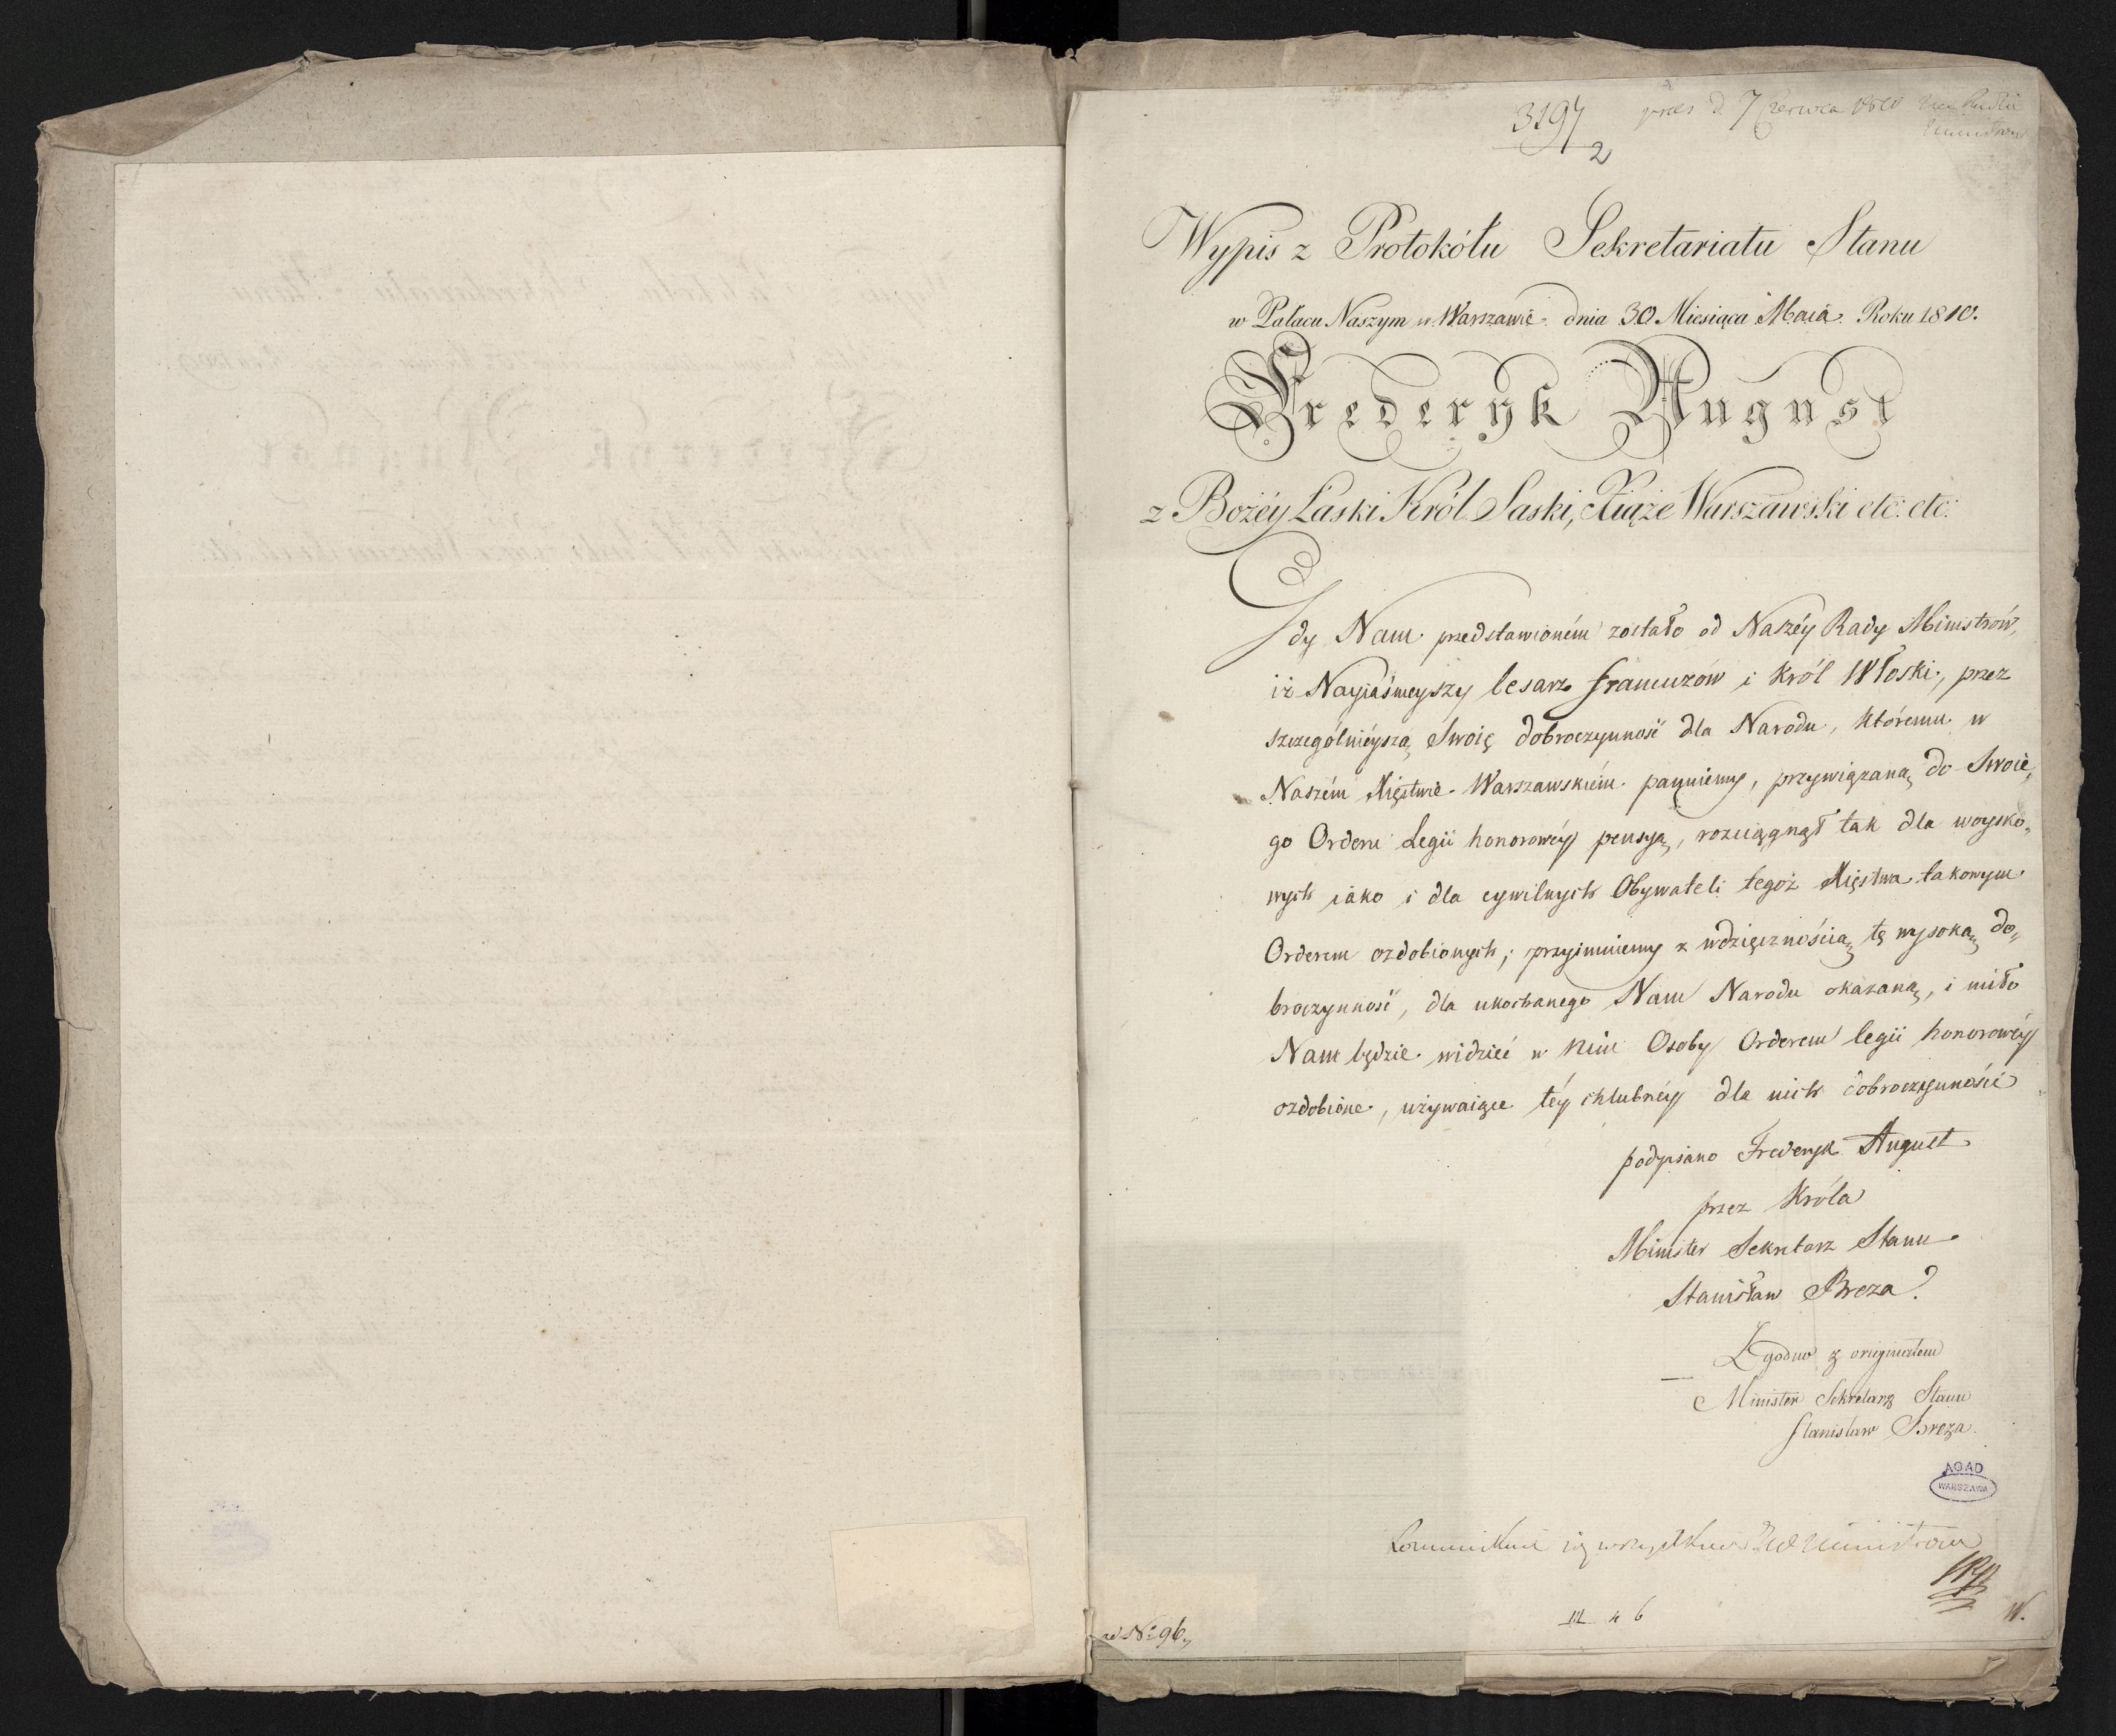 3197
2
pres d 7 Czerwca 1810
Wypis z Protokółu Sekretariatu Stanu
w Pałacu Naszym w Warszawie dnia 30 Miesiąca Maia. Roku 1810.
Frederyk August
z Bożéy Łaski Król Saski, Xiąże Warszawski etc: etc:
Gdy Nam przedstawioném zostało od Naszéy Rady Ministrów,
iż Nayiaśnieyszy Cesarz Francuzów i Król Włoski, przez
szczególnieyszą Swoię dobroczynność dla Narodu, któremu w
Naszém Xięstwie Warszawskiém panuiemy, przywiązaną do Swoie„
go Orderu Legii honorowéy pensyą, rozciągnął tak dla woysko„
wych iako i dla cywilnych Obywateli tegoż Xięstwa takowym
Orderem ozdobionych; przyimuiemy z wdzięcznością tę wysoką do„
broczynność, dla ukochanego Nam Narodu okazaną, i miło
Nam będzie widzieć w nim Osoby Orderem legii honorowéy
ozdobione, używaiące téy chlubnéy dla nich dobroczynności
podpisano Frederyk August
przez Króla
Minister Sekretarz Stanu
Stanisław Breza
Zgodno z oryginałem
Minister Sekretarz Stanu
Stanisław Breza.
AGAD
WARSZAWA
w No 96,
W.